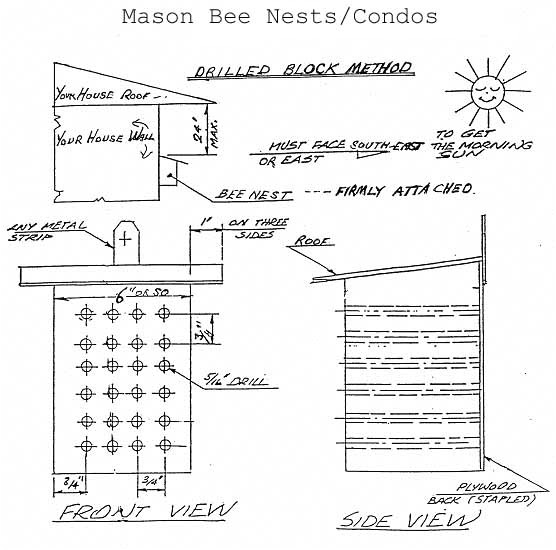 Mason Bee Nests/Condos
DRILLED BLOCK METHOD
YOUR HOUSE ROOF
YOUR HOUSE WALL
24" MAX.
MUST FACE SOUTH-EAST
OR EAST
TO GET
THE MORNING
SUN
BEE NEST --- FIRMLY ATTACHED.
ANY METAL
STRIP
1"
ON THREE
SIDES
ROOF
6" OR SO
3/4"
5/16" DRILL
3/4"
3/4"
FRONT VIEW
PLYWOOD
BACK (STAPLED)
SIDE VIEW